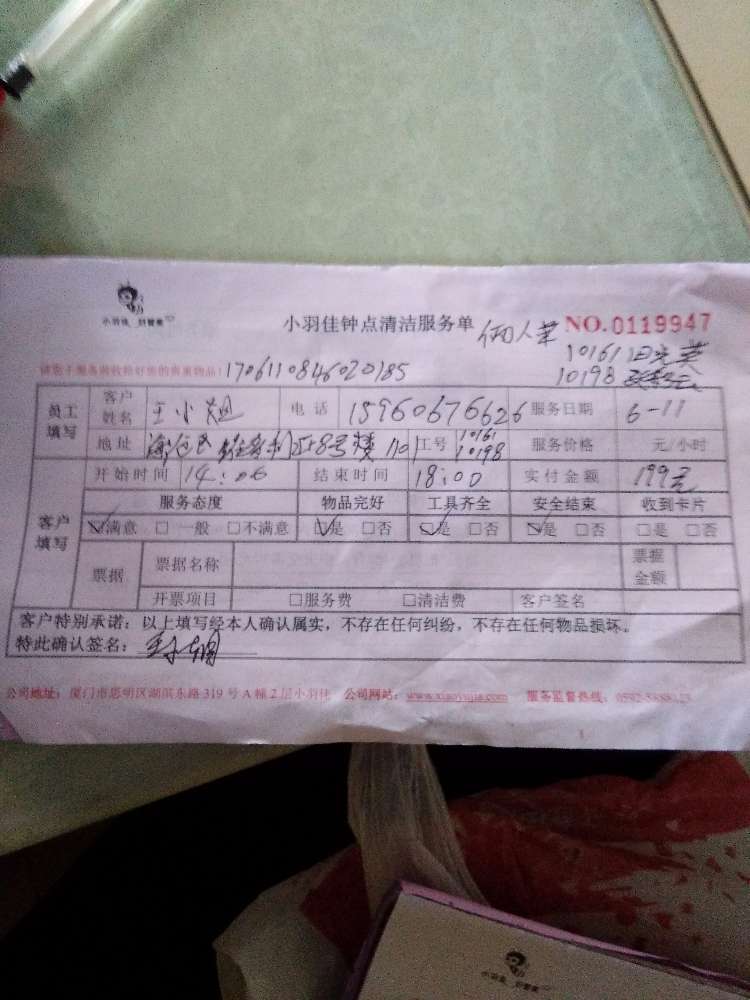 小羽佳 好管家
小羽佳钟点清洁服务单 NO.0119947
10161
10198
1706110846020185
员工填写 客户姓名 王小姐 电话 15960676626 服务日期 6-11
地址 号楼 工号 10161 10198 服务价格 元/小时
客户填写 开始时间 14:06 结束时间 18:00 实付金额 199元
服务态度 物品完好 工具齐全 安全结束 收到卡片
☑满意 □一般 □不满意 ☑是 □否 ☑是 □否 ☑是 □否 □是 □否
票据 票据名称 票据金额
开票项目 □服务费 □清洁费 客户签名
客户特别承诺：以上填写经本人确认属实，不存在任何纠纷，不存在任何物品损坏。
特此确认签名：
公司地址：厦门市思明区湖滨东路319号A幢2层小羽佳 公司网站：www.xiaoyujia.com 服务监督热线：
小羽佳 好管家